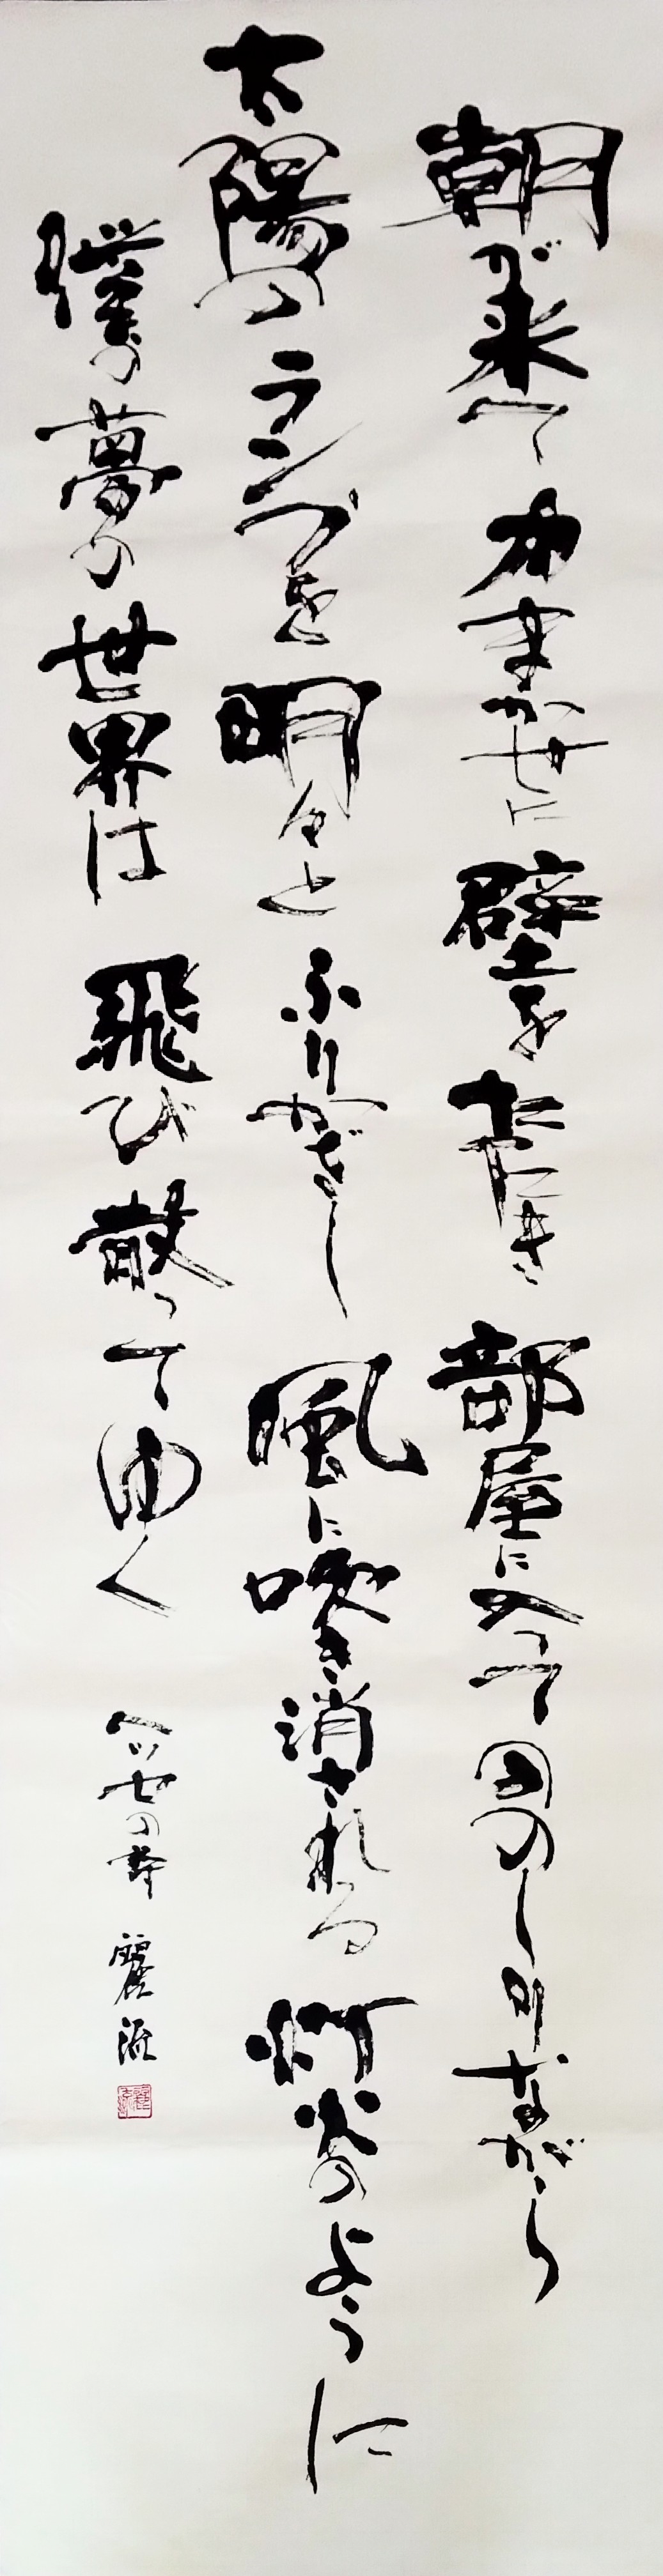 朝が来て力まかせに壁をたたき部屋に入ってののしりながら
太陽のランプを明々とふりかざし風に吹き消される灯火のように
僕の夢の世界は飛び散ってゆく ヘッセの詩 麗流